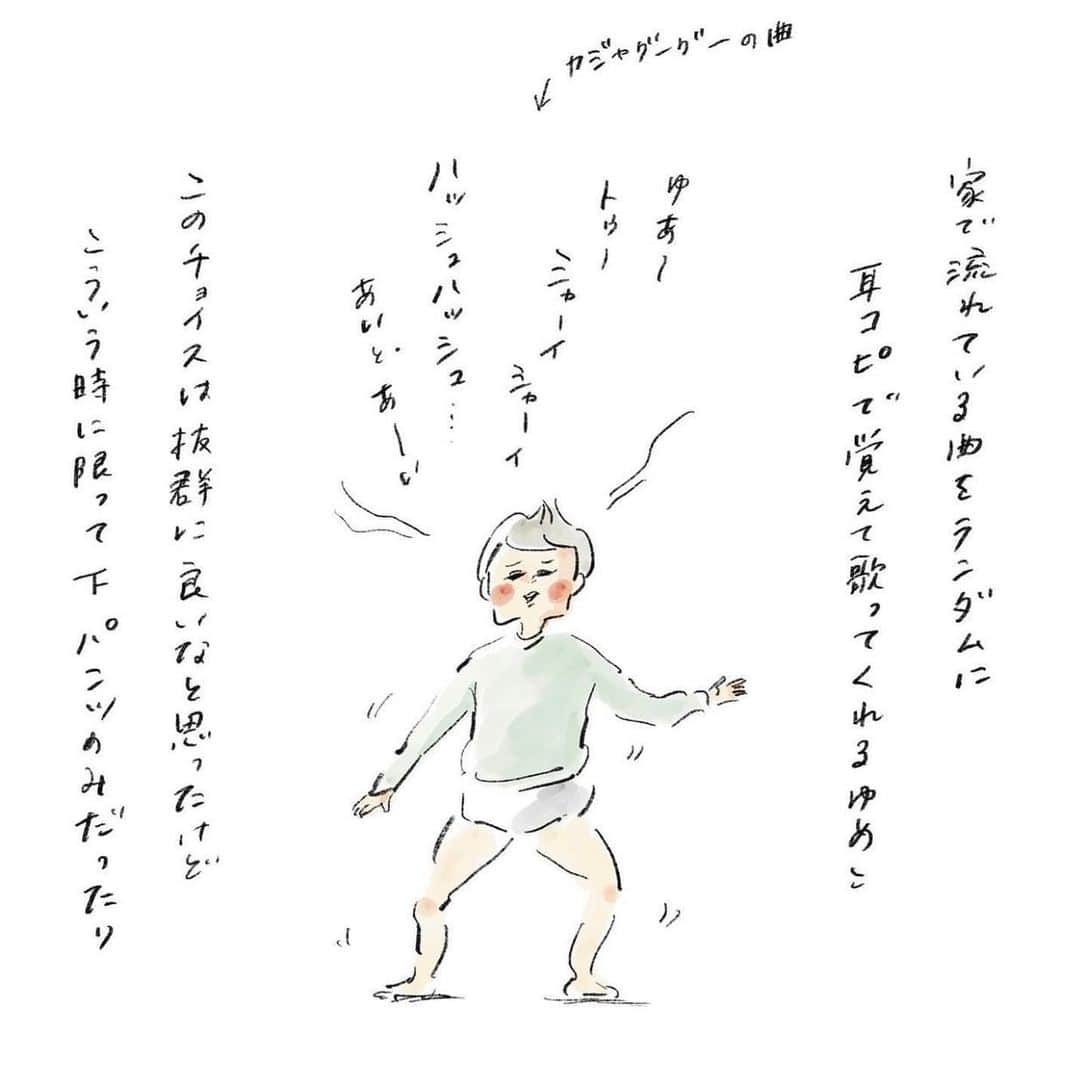 家で流れている曲をランダムに
耳コピで覚えて歌ってくれるゆめこ
カジャグーグーの曲
ゆあ〜
トゥー
シャーイ
シャーイ
ハッシュハッシュ…
あいど あーい
このチョイスは抜群に良いなと思ったけど
こういう時に限って下パンツのみだったり